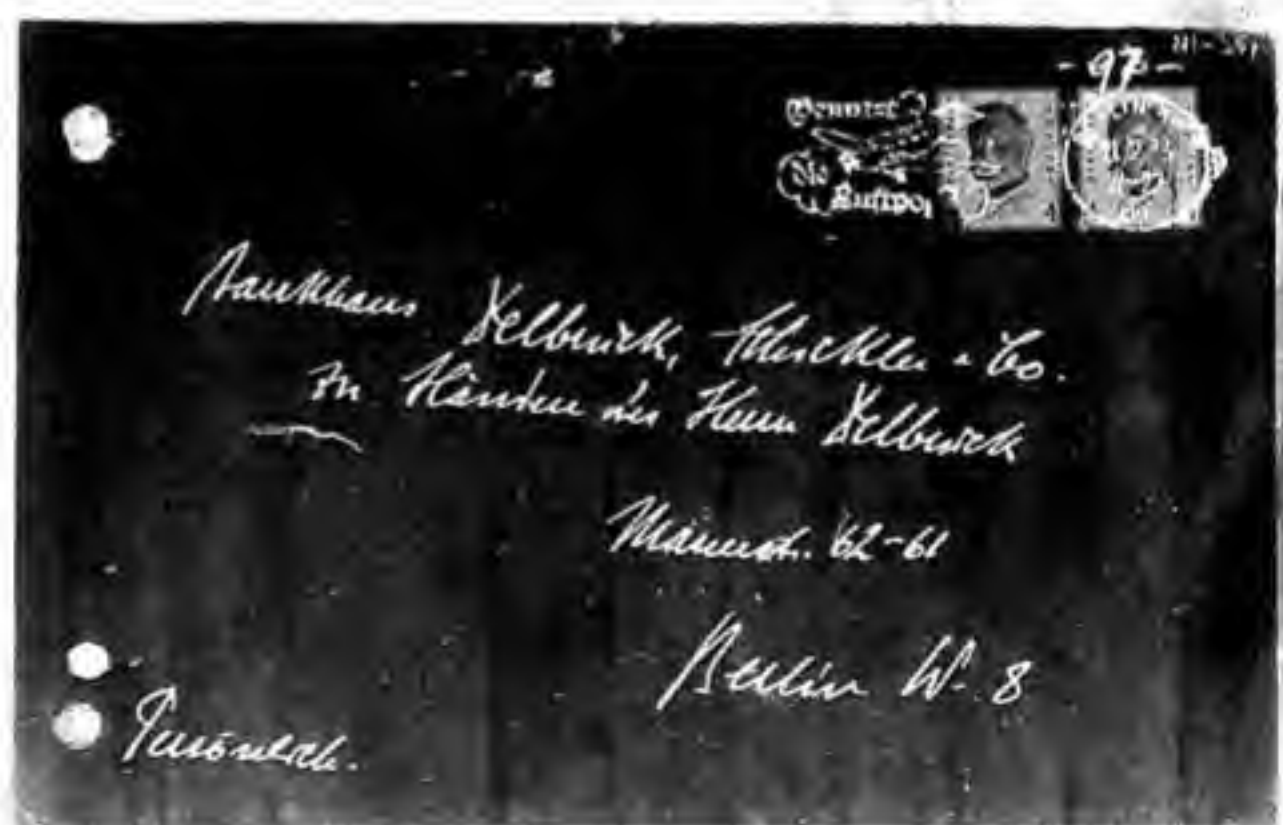 - 97 -
Benutzt
Die
Luftpo
Bankhaus Delbrück, Schickler u Co.
Zu Händen des Herrn Delbrück
Mauerstr. 62-61
Berlin W. 8
Persönlich.